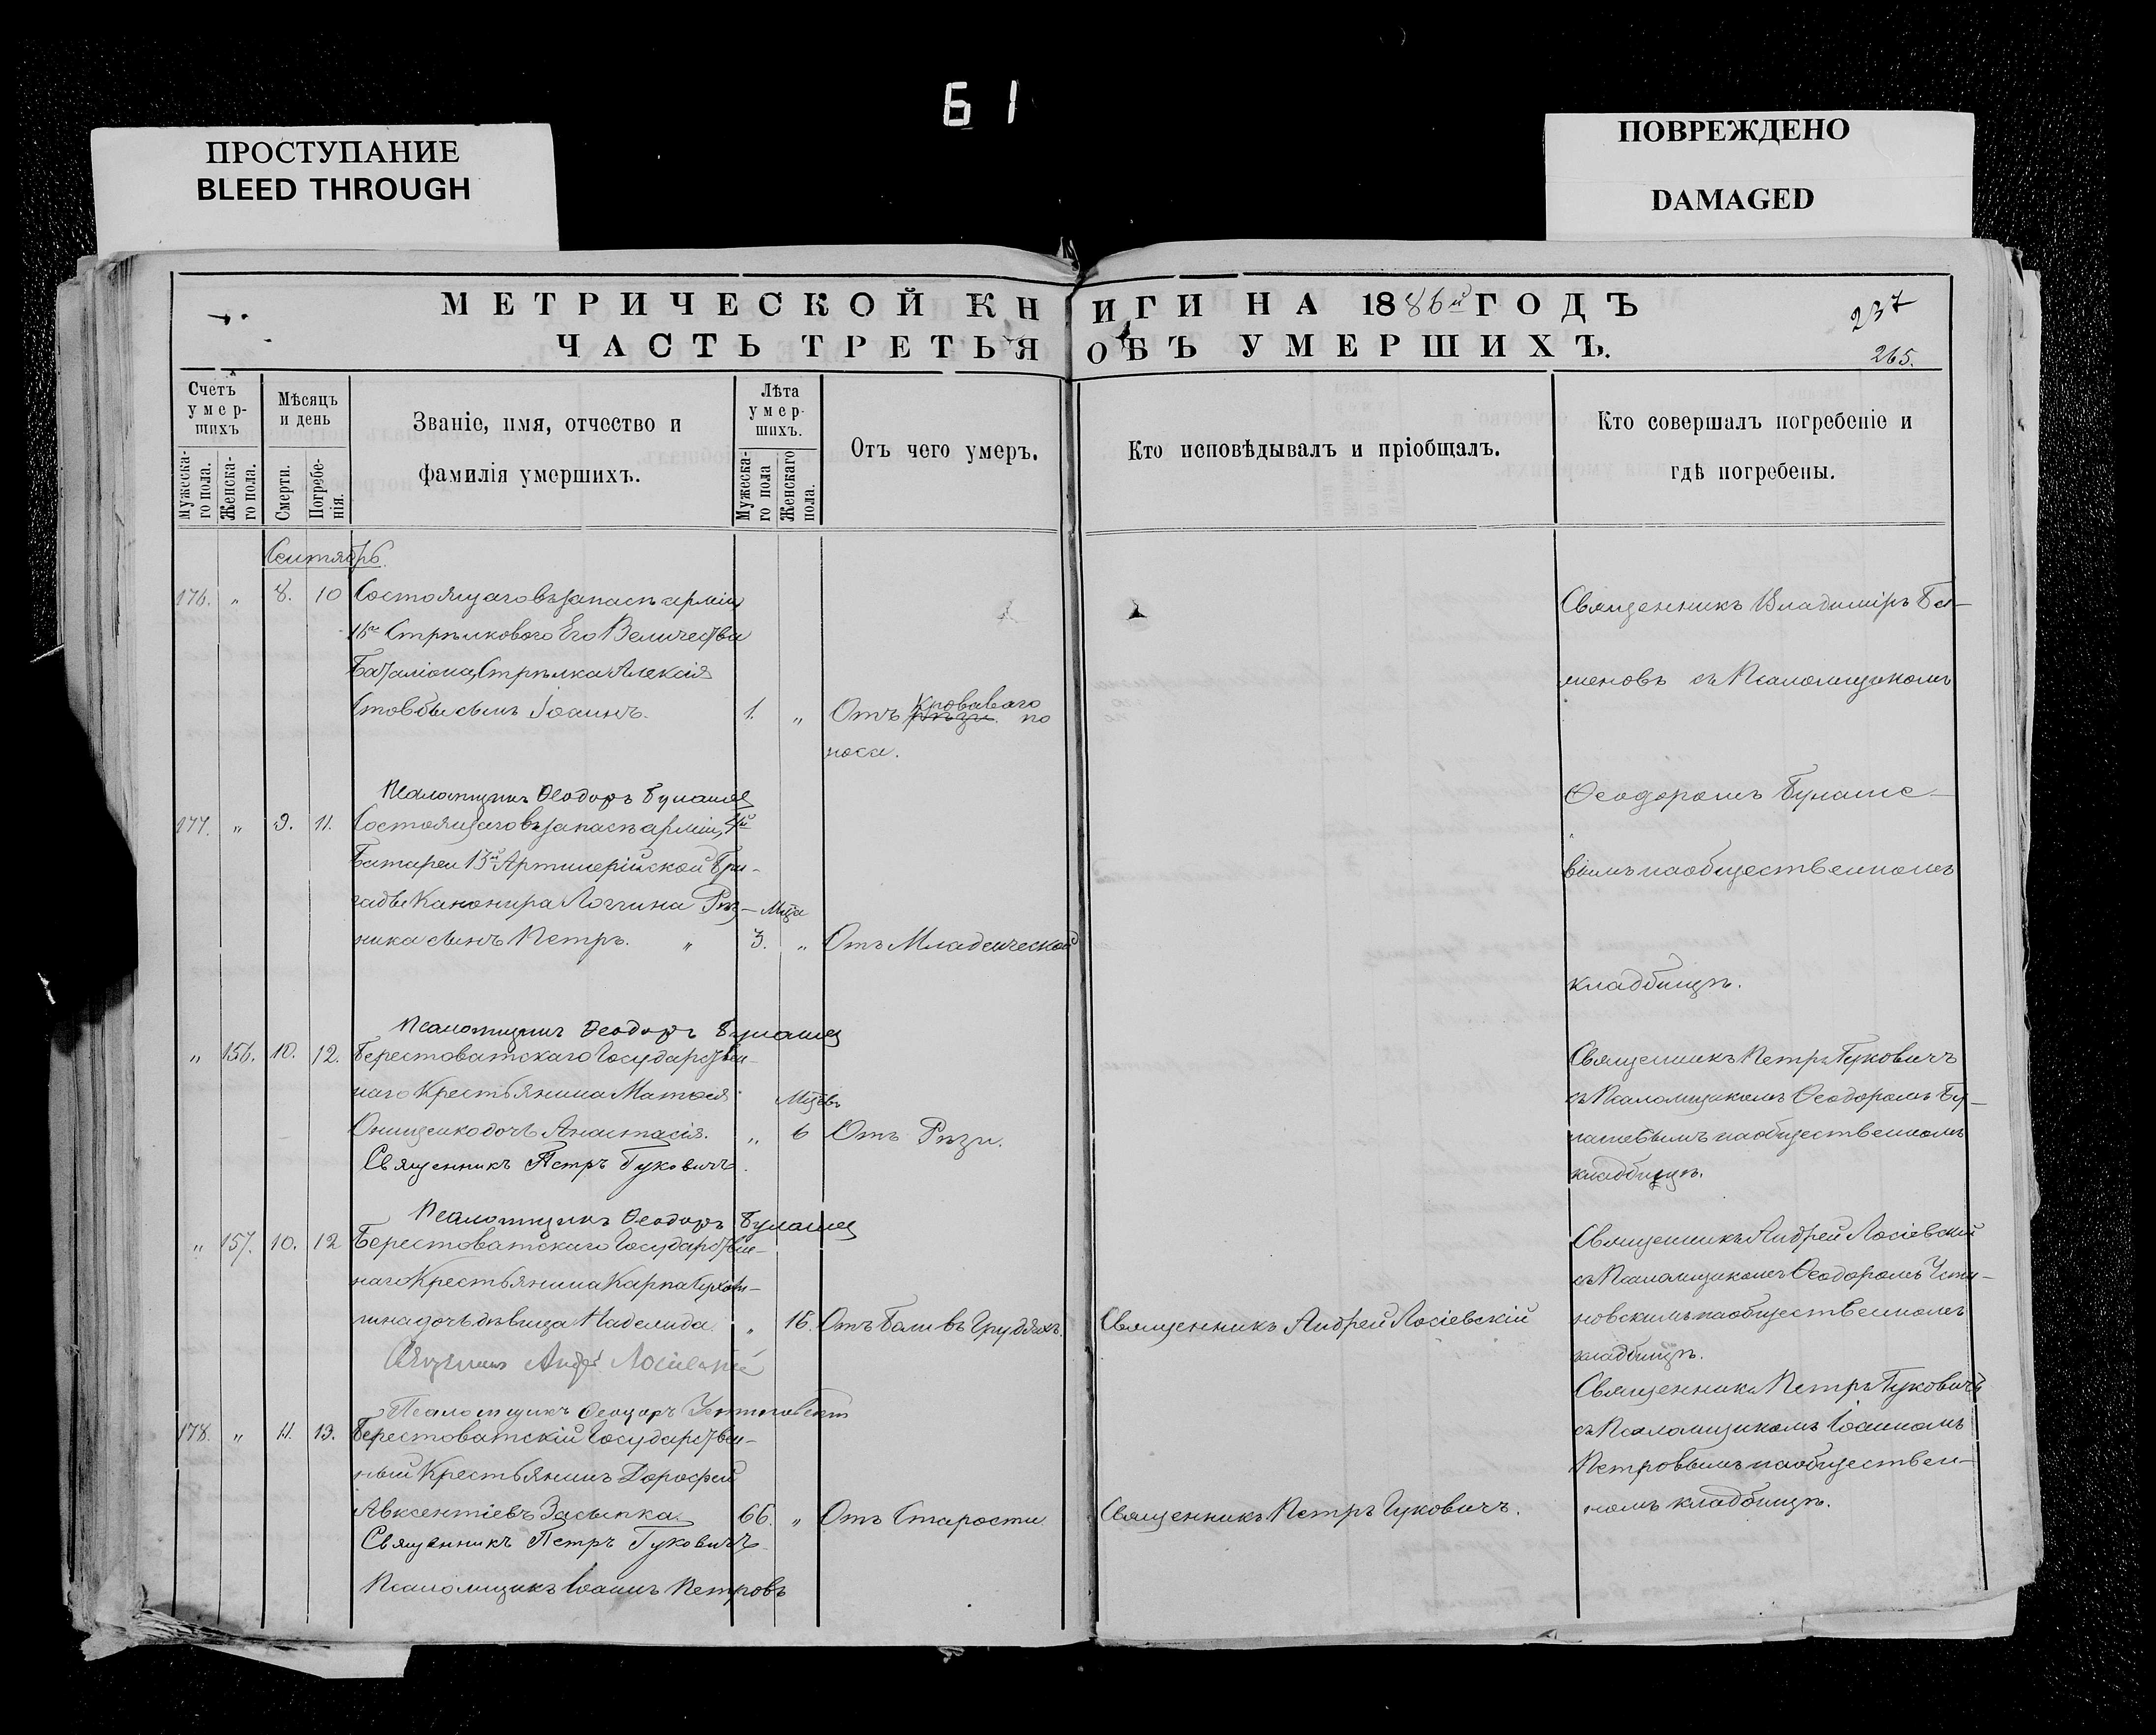 Б 1
ПРОСТУПАНИЕ
BLEED THROUGH
ПОВРЕЖДЕНО
DAMAGED
МЕТРИЧЕСКОЙ КНИГИ НА 1886й ГОДЪ
237
ЧАСТЬ ТРЕТЬЯ ОБЪ УМЕРШИХЪ.
265.
Счетъ умер-шихъ
Мужеска-го пола.
Женска-го пола.
Мѣсяцъ и день
Смерти.
Погребе-нія.
Званіе, имя, отчество и
фамилія умершихъ.
Лѣта умер-шихъ.
Мужеска-го пола
Женскаго пола.
Отъ чего умеръ.
Кто исповѣдывалъ и пріобщалъ.
Кто совершалъ погребеніе и
гдѣ погребены.
Сентябрь.
176. " 8. 10 Состоящаго въ запасѣ арміи
Стрѣлковаго Его Величества
Баталіона, Стрѣлка Алексія
сынъ Іоаннъ. 1. " Отъ кроваваго по
носа.
Священникъ Владиміръ
съ Псаломщикомъ
Ѳеодоромъ
на общественномъ
кладбищѣ.
Псаломщикъ Ѳеодоръ
177. " 9. 11. Состоящаго въ запасѣ арміи, 4й
Батареи 13й Артилерійской Бри-
гады Канонира Логгина Рѣз- Мца
ника сынъ Петръ. " 3. " Отъ Младенческой
Псаломщикъ Ѳеодоръ
" 156. 10. 12. Берестоватскаго Государствен-
наго Крестьянина Матѳея Мцевъ
Онищенко дочь Анастасія. " 6 Отъ Рѣзи.
Священникъ Петръ Гуковичъ.
Священникъ Петръ Гуковичъ
съ Псаломщикомъ Ѳеодоромъ
на общественномъ
кладбищѣ.
Псаломщикъ Ѳеодоръ
" 157. 10. 12 Берестоватскаго Государствен-
наго Крестьянина Карпа
дочь дѣвица " 16. Отъ Боли въ Грудяхъ. Священникъ Андрей Лосіевскій
Священникъ Андрей Лосіевскій
Священникъ Андрей Лосіевскій
съ Псаломщикомъ Ѳеодоромъ Усти-
новскимъ на общественномъ
кладбищѣ.
Псаломщикъ Ѳеодоръ Устиновскій
178. " 11. 13. Берестоватскій Государствен-
ный Крестьянинъ Дорофей
Авксентіевъ Засыпка. 66. " Отъ Старости Священникъ Петръ Гуковичъ.
Священникъ Петръ Гуковичъ
Псаломщикъ Іоаннъ Петровъ
Священникъ Петръ Гуковичъ
съ Псаломщикомъ Іоанномъ
Петровымъ на обществен-
номъ кладбищѣ.